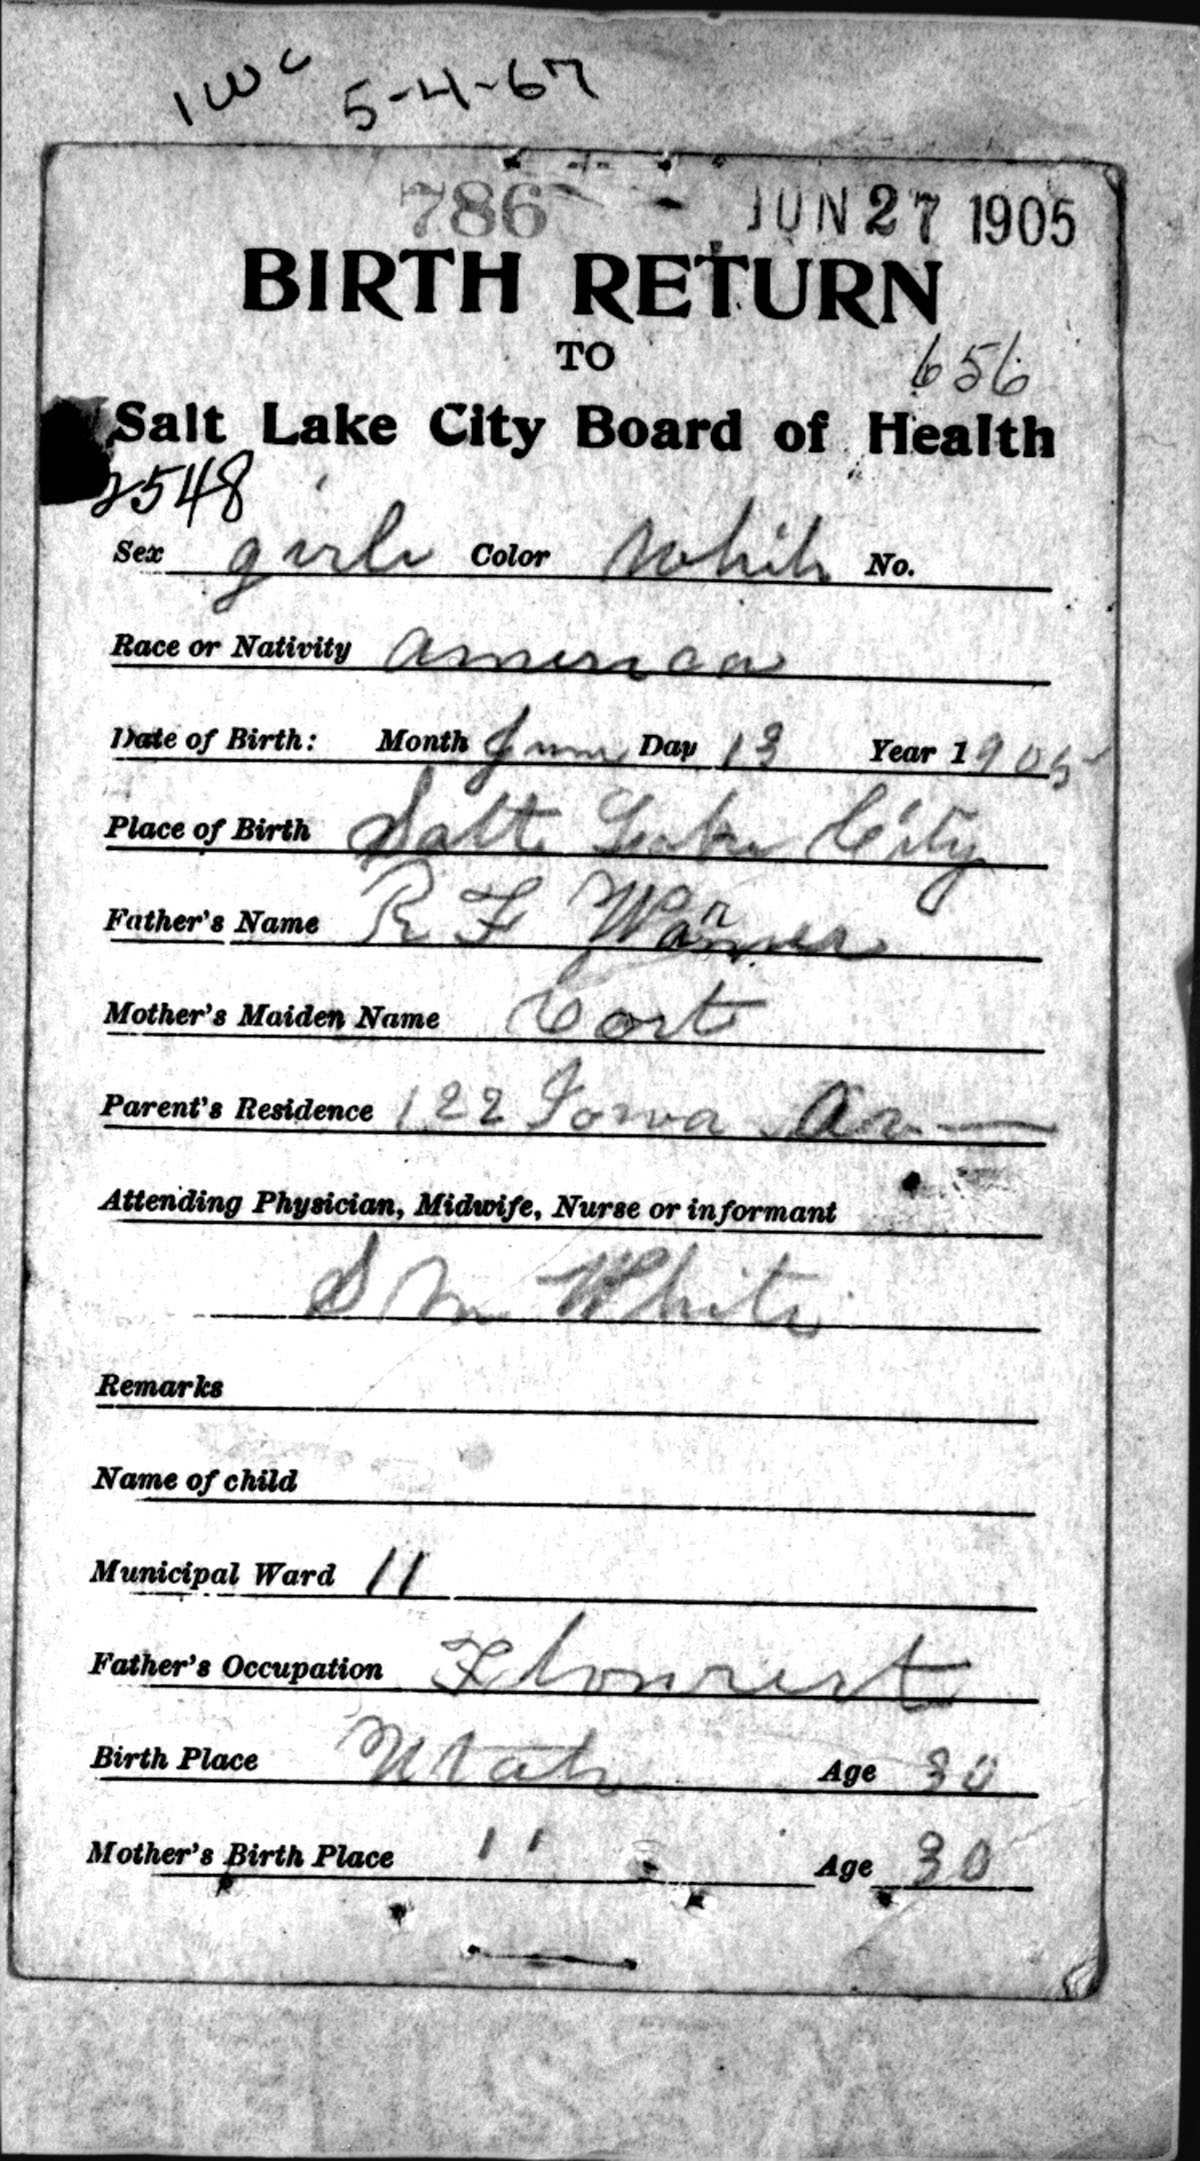 1wc 5-4-67
786 JUN 27 1905
BIRTH RETURN
TO
656
Salt Lake City Board of Health
2548
Sex girl Color White No.
Race or Nativity American
Date of Birth: Month June Day 13 Year 1905
Place of Birth Salt Lake City
Father's Name R F Wanner
Mother's Maiden Name Cort
Parent's Residence 122 Iowa Av
Attending Physician, Midwife, Nurse or informant
S M White
Remarks
Name of child
Municipal Ward 11
Father's Occupation
Birth Place Utah Age 30
Mother's Birth Place " Age 30